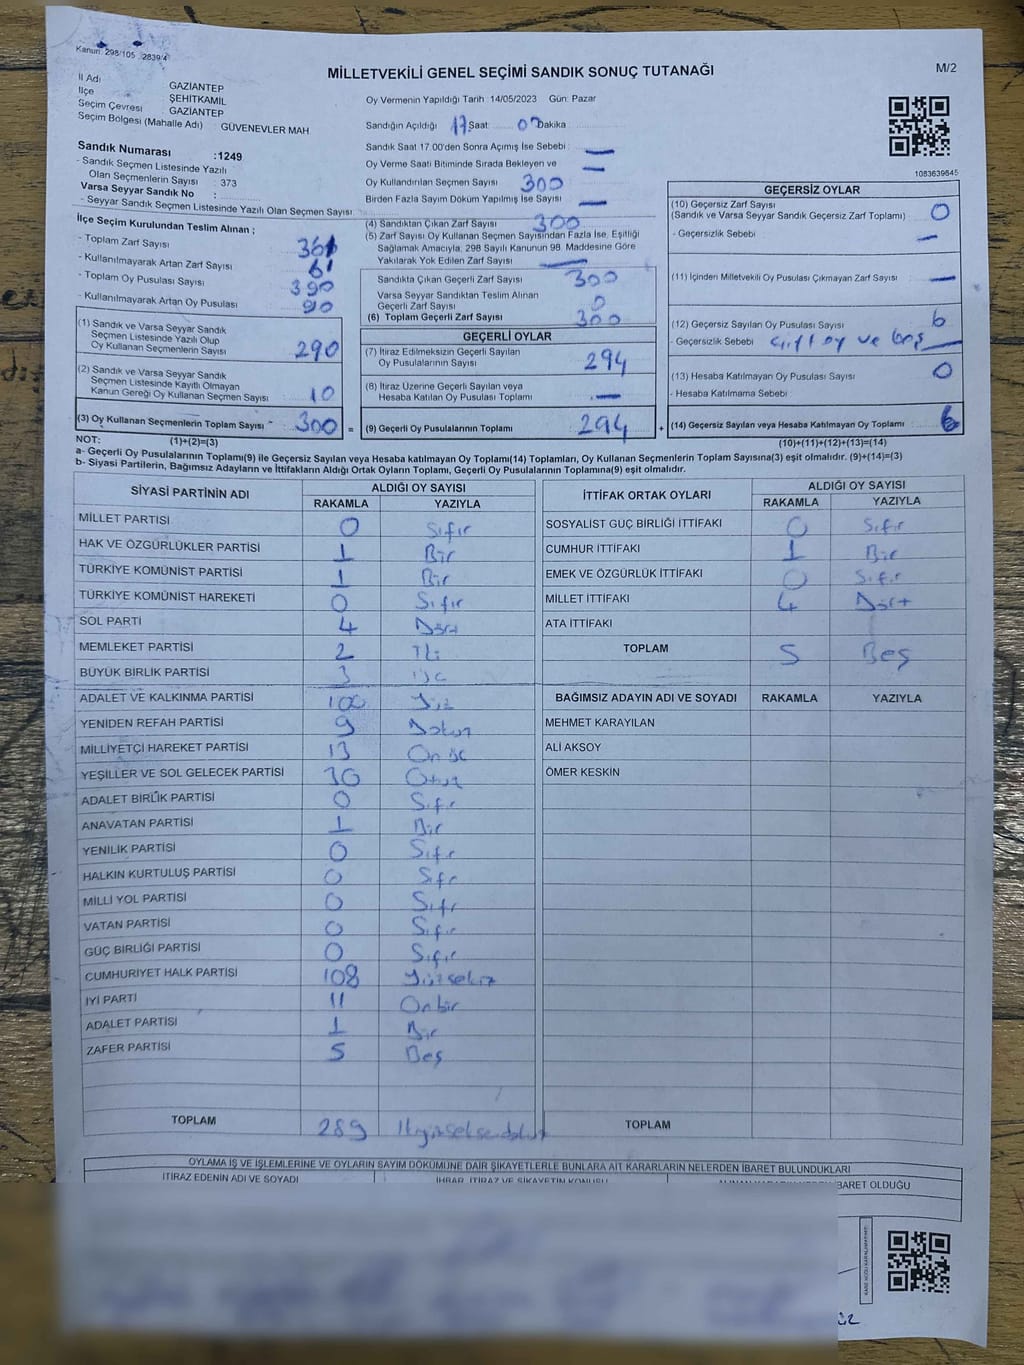 Kanun: 298/105 2839/4
MİLLETVEKİLİ GENEL SEÇİMİ SANDIK SONUÇ TUTANAĞI
M/2
İl Adı GAZİANTEP
İlçe ŞEHİTKAMİL
Seçim Çevresi GAZİANTEP
Seçim Bölgesi (Mahalle Adı) GÜVENEVLER MAH
Oy Vermenin Yapıldığı Tarih 14/05/2023 Gün: Pazar
Sandığın Açıldığı 17 Saat: 00 Dakika
Sandık Saat 17.00'den Sonra Açımış İse Sebebi : —
Oy Verme Saati Bitiminde Sırada Bekleyen ve —
Oy Kullandırılan Seçmen Sayısı 300
Birden Fazla Sayım Döküm Yapılmış İse Sayısı —
1083639645
Sandık Numarası :1249
- Sandık Seçmen Listesinde Yazılı
Olan Seçmenlerin Sayısı : 373
Varsa Seyyar Sandık No :
- Seyyar Sandık Seçmen Listesinde Yazılı Olan Seçmen Sayısı
İlçe Seçim Kurulundan Teslim Alınan ;
- Toplam Zarf Sayısı 361
- Kullanılmayarak Artan Zarf Sayısı 61
- Toplam Oy Pusulası Sayısı 390
- Kullanılmayarak Artan Oy Pusulası 90
(1) Sandık ve Varsa Seyyar Sandık
Seçmen Listesinde Yazılı Olup
Oy Kullanan Seçmenlerin Sayısı 290
(2) Sandık ve Varsa Seyyar Sandık
Seçmen Listesinde Kayıtlı Olmayan
Kanun Gereği Oy Kullanan Seçmen Sayısı 10
(3) Oy Kullanan Seçmenlerin Toplam Sayısı 300 =
(4) Sandıktan Çıkan Zarf Sayısı 300
(5) Zarf Sayısı Oy Kullanan Seçmen Sayısından Fazla İse, Eşitliği
Sağlamak Amacıyla, 298 Sayılı Kanunun 98. Maddesine Göre
Yakılarak Yok Edilen Zarf Sayısı —
Sandıkta Çıkan Geçerli Zarf Sayısı 300
Varsa Seyyar Sandıktan Teslim Alınan
Geçerli Zarf Sayısı 0
(6) Toplam Geçerli Zarf Sayısı 300
GEÇERLİ OYLAR
(7) İtiraz Edilmeksizin Geçerli Sayılan
Oy Pusulalarının Sayısı 294
(8) İtiraz Üzerine Geçerli Sayılan veya
Hesaba Katılan Oy Pusulası Toplamı —
(9) Geçerli Oy Pusulalarının Toplamı 294 +
GEÇERSİZ OYLAR
(10) Geçersiz Zarf Sayısı
(Sandık ve Varsa Seyyar Sandık Geçersiz Zarf Toplamı) 0
- Geçersizlik Sebebi —
(11) İçinden Milletvekili Oy Pusulası Çıkmayan Zarf Sayısı —
(12) Geçersiz Sayılan Oy Pusulası Sayısı 6
- Geçersizlik Sebebi çift oy ve boş
(13) Hesaba Katılmayan Oy Pusulası Sayısı 0
- Hesaba Katılmama Sebebi
(14) Geçersiz Sayılan veya Hesaba Katılmayan Oy Toplamı 6
NOT: (1)+(2)=(3)
(10)+(11)+(12)+(13)=(14)
a- Geçerli Oy Pusulalarının Toplamı(9) ile Geçersiz Sayılan veya Hesaba katılmayan Oy Toplamı(14) Toplamları, Oy Kullanan Seçmenlerin Toplam Sayısına(3) eşit olmalıdır. (9)+(14)=(3)
b- Siyasi Partilerin, Bağımsız Adayların ve İttifakların Aldığı Ortak Oyların Toplamı, Geçerli Oy Pusulalarının Toplamına(9) eşit olmalıdır.
SİYASİ PARTİNİN ADI ALDIĞI OY SAYISI
RAKAMLA YAZIYLA
MİLLET PARTİSİ 0 Sıfır
HAK VE ÖZGÜRLÜKLER PARTİSİ 1 Bir
TÜRKİYE KOMÜNİST PARTİSİ 1 Bir
TÜRKİYE KOMÜNİST HAREKETİ 0 Sıfır
SOL PARTİ 4 Dört
MEMLEKET PARTİSİ 2 İki
BÜYÜK BİRLİK PARTİSİ 3 Üç
ADALET VE KALKINMA PARTİSİ 100 Yüz
YENİDEN REFAH PARTİSİ 9 Dokuz
MİLLİYETÇİ HAREKET PARTİSİ 13 On üç
YEŞİLLER VE SOL GELECEK PARTİSİ 30 Otuz
ADALET BİRLİK PARTİSİ 0 Sıfır
ANAVATAN PARTİSİ 1 Bir
YENİLİK PARTİSİ 0 Sıfır
HALKIN KURTULUŞ PARTİSİ 0 Sıfır
MİLLİ YOL PARTİSİ 0 Sıfır
VATAN PARTİSİ 0 Sıfır
GÜÇ BİRLİĞİ PARTİSİ 0 Sıfır
CUMHURİYET HALK PARTİSİ 108 Yüzsekiz
İYİ PARTİ 11 Onbir
ADALET PARTİSİ 1 Bir
ZAFER PARTİSİ 5 Beş
TOPLAM 289 İkiyüzseksendokuz
İTTİFAK ORTAK OYLARI ALDIĞI OY SAYISI
RAKAMLA YAZIYLA
SOSYALİST GÜÇ BİRLİĞİ İTTİFAKI 0 Sıfır
CUMHUR İTTİFAKI 1 Bir
EMEK VE ÖZGÜRLÜK İTTİFAKI 0 Sıfır
MİLLET İTTİFAKI 4 Dört
ATA İTTİFAKI
TOPLAM 5 Beş
BAĞIMSIZ ADAYIN ADI VE SOYADI RAKAMLA YAZIYLA
MEHMET KARAYILAN
ALİ AKSOY
ÖMER KESKİN
TOPLAM
OYLAMA İŞ VE İŞLEMLERİNE VE OYLARIN SAYIM DÖKÜMÜNE DAİR ŞİKAYETLERLE BUNLARA AİT KARARLARIN NELERDEN İBARET BULUNDUKLARI
İTİRAZ EDENİN ADI VE SOYADI İHBAR, İTİRAZ VE ŞİKAYETİN KONUSU İBARET OLDUĞU